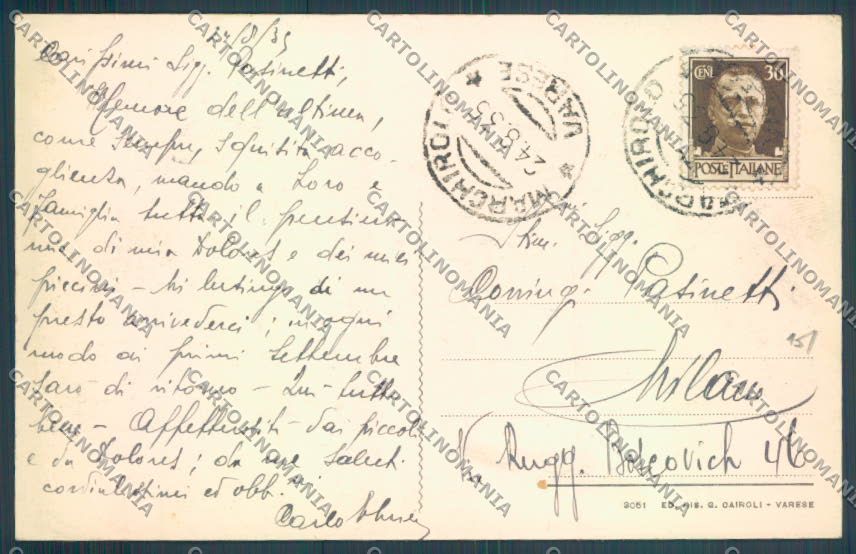 24/8/35
Carissimi Sigg. Pasinetti,
Memore dell'ultima,
come sempre, squisita acco-
glienza, mando a Loro e
famiglia tutta il
mia di mia Dolores e dei miei
piccini - Mi lusingo di un
presto arrivederci; in ogni
modo ai primi Settembre
sarò di ritorno - Qui tutto
bene - Affettuosità dai piccoli
e da Dolores; da me saluti
cordialissimi ed obb.
Carlo
MARCHIROLO
24.8.35
VARESE
CENT 30
POSTE ITALIANE
MARCHIROLO
Stim. Sigg.
Pasinetti
Milano
V. Rugg. Boscovich 46
151
3051 ED. DIS. G. CAIROLI - VARESE
CARTOLINOMANIA